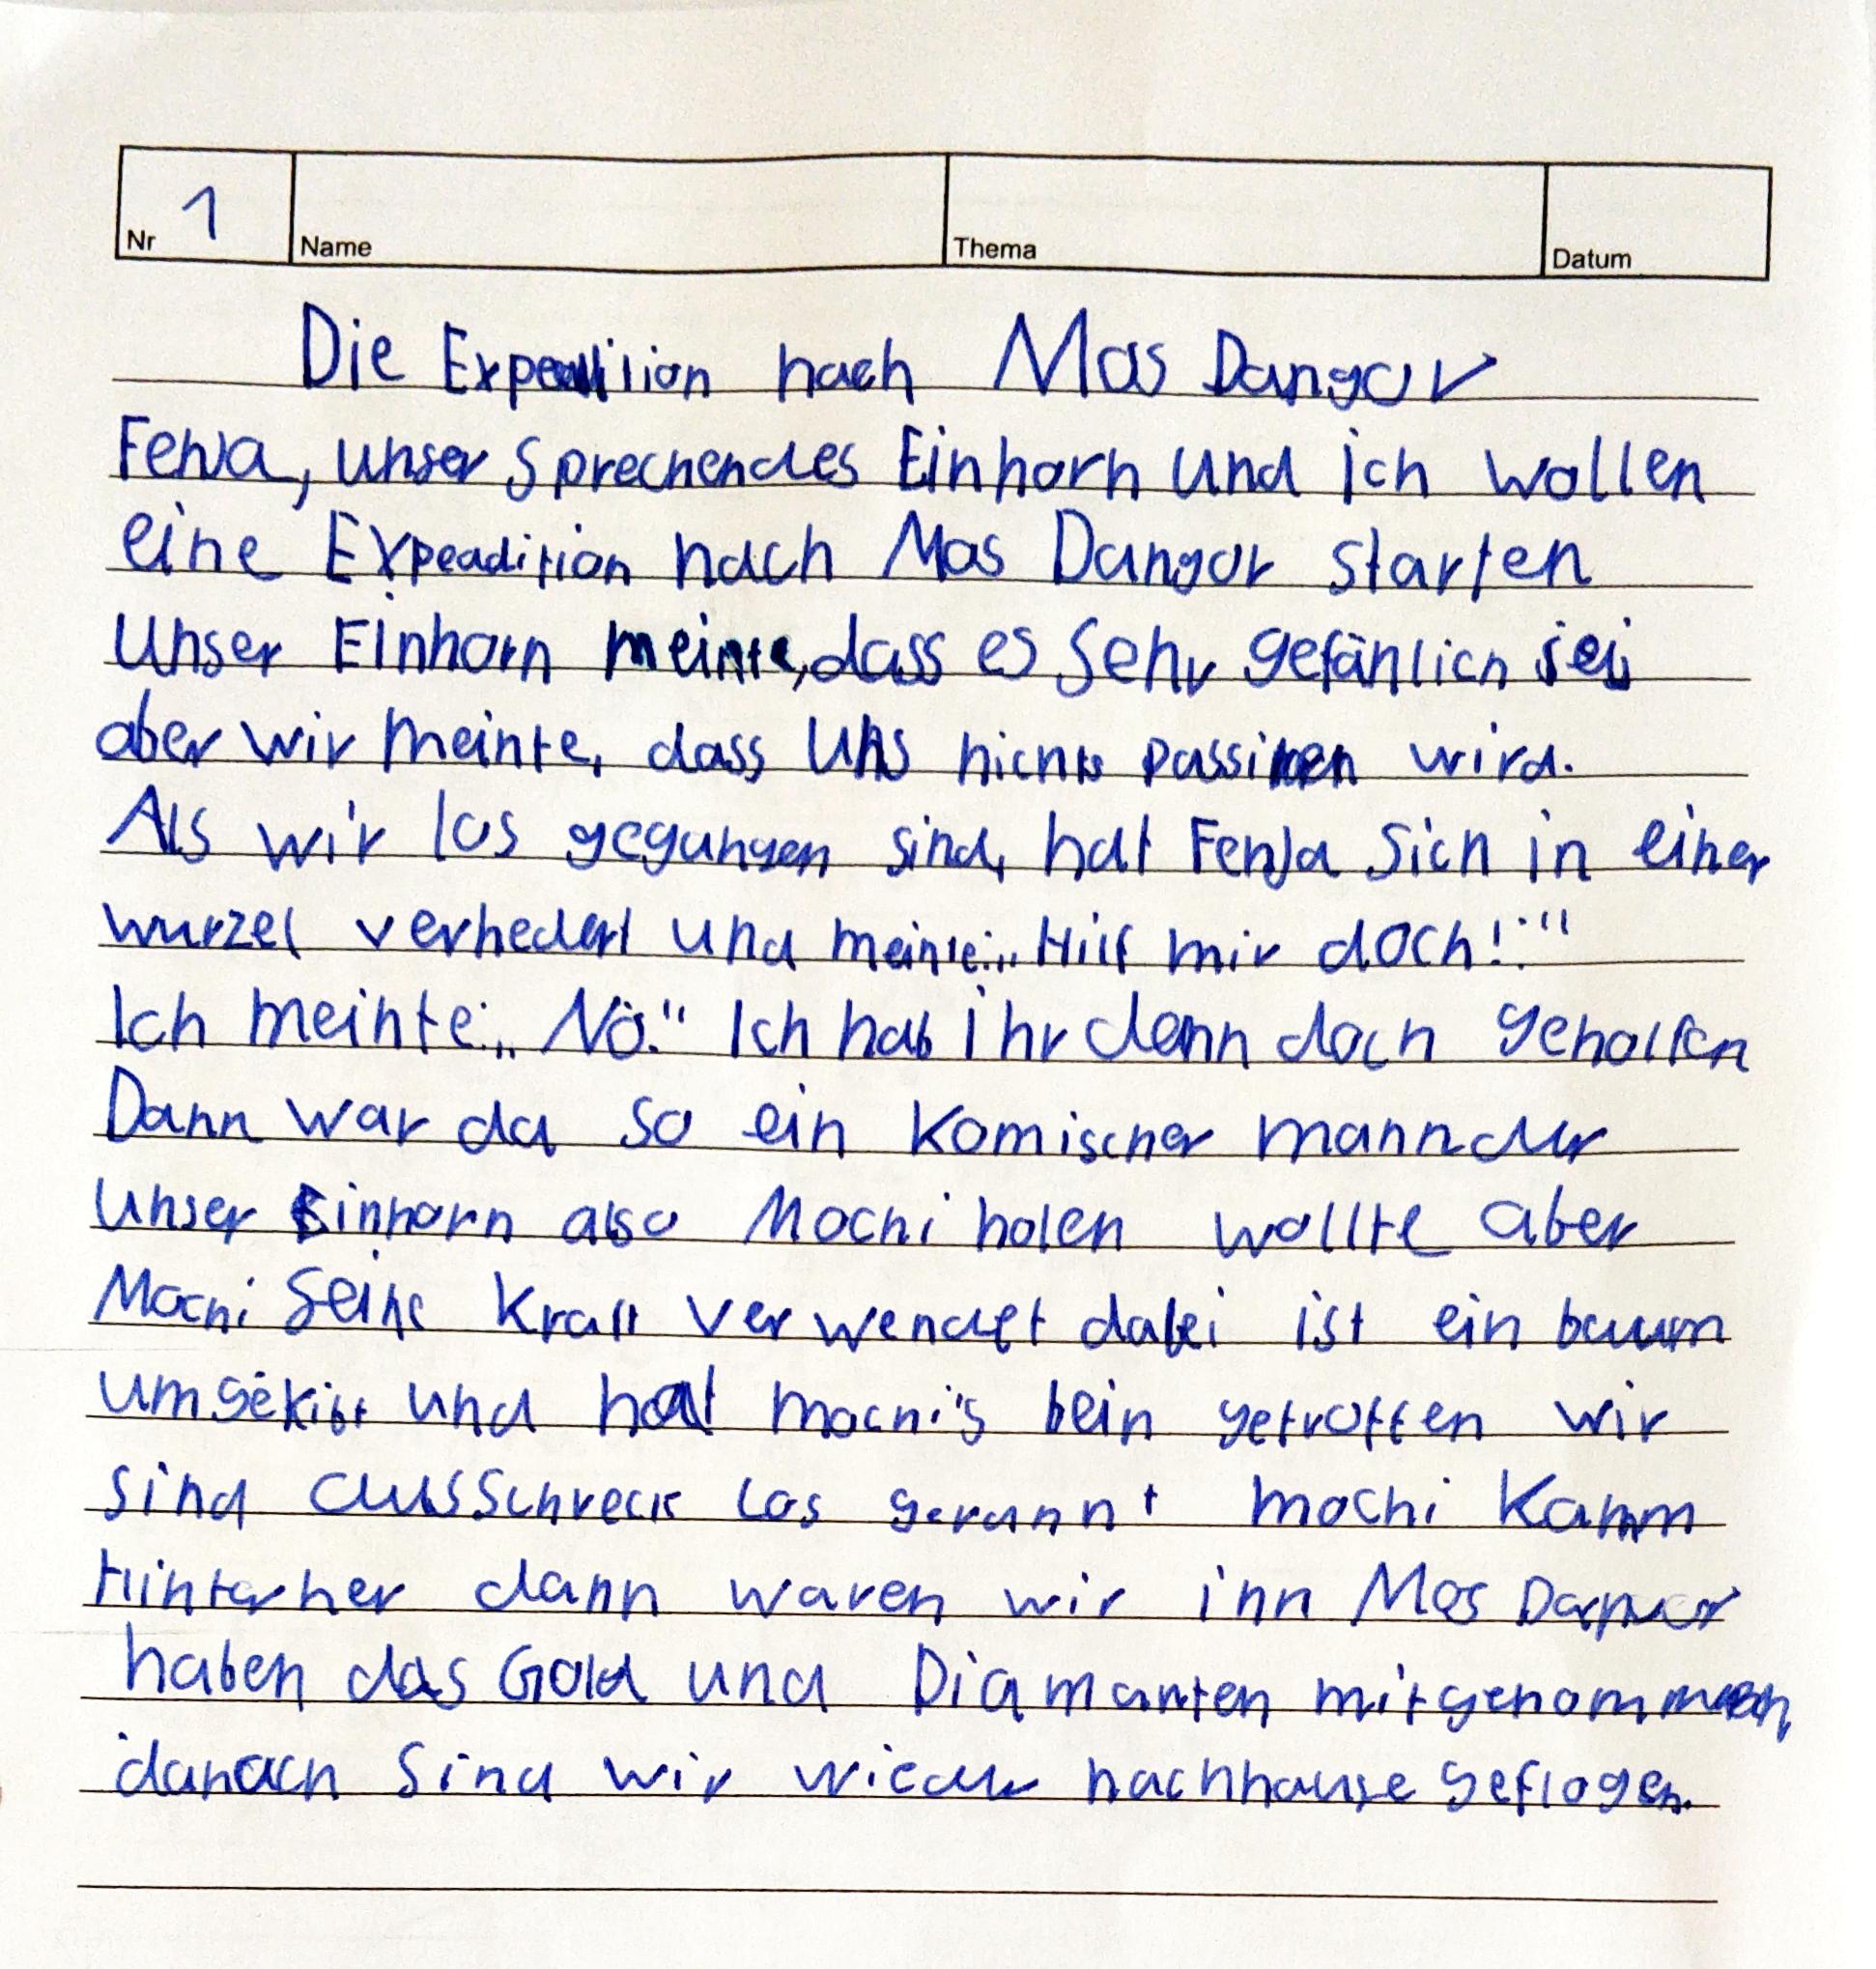 1
Nr
Name
Thema
Datum
Die Expedition nach Mos Dangor
Fenja, unser sprechendes Einhorn und ich wollen
eine Expeadition nach Mos Dangor starten
Unser Einhorn meinte, dass es sehr gefählich sei
aber wir meinte, dass uns nichts passiren wird.
Als wir los gegangen sind, hat Fenja sich in einer
wurzel verhedert und meinte: „Hilf mir doch!"
Ich meinte: „Nö." Ich hab ihr dann doch geholfen
Dann war da so ein komischer mann der
unser Einhorn also Mochi holen wollte aber
Mochi seine Kraft verwendet dabei ist ein baum
umgekibt und hat mochi's bein getroffen wir
sind ausschreck los gerannt mochi kamm
Hinterher dann waren wir inn Mos
haben das Gold und Diamanten mitgenommen,
danach sind wir wieder nachhause geflogen.